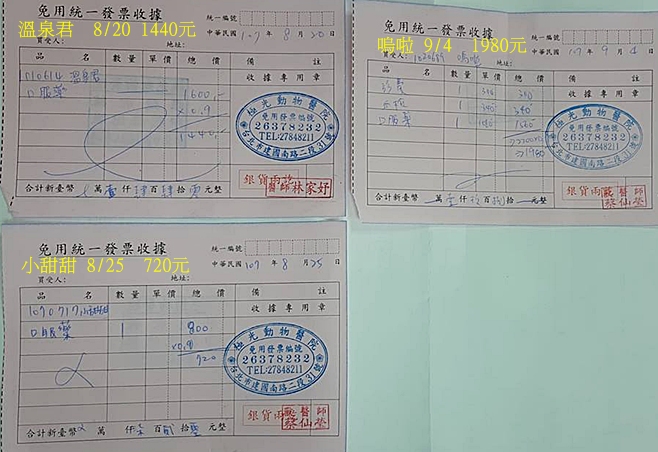 免用統一發票收據
溫泉君 8/20 1440元
統一編號
中華民國 107年 8月 20日
買受人：
地址：
品名 數量 單價 總價 備註
010614 溫泉君
收據專用章
口服藥 1600.-
x0.9
1440
極光動物醫院
免用發票編號
26378232
TEL:27848211
台北市建國南路二段31號
銀貨兩訖
醫師林家妤
合計新臺幣 萬壹仟肆百肆拾零元整
免用統一發票收據
嗚啦 9/4 1980元
統一編號
中華民國 107年 9月 4日
買受人：
地址：
品名 數量 單價 總價 備註
1
收據專用章
1
口服藥 1
極光動物醫院
免用發票編號
26378232
TEL:27848211
台北市建國南路二段31號
1980
銀貨兩訖
醫師
蔡仙塋
合計新臺幣 萬壹仟玖百捌拾元整
免用統一發票收據
小甜甜 8/25 720元
統一編號
中華民國 107年 8月 25日
買受人：
地址：
品名 數量 單價 總價 備註
1070717小甜甜
收據專用章
口服藥 1 800
x0.9
720
極光動物醫院
免用發票編號
26378232
TEL:27848211
台北市建國南路二段31號
銀貨兩訖
醫師
蔡仙塋
合計新臺幣 萬 仟柒百貳拾零元整